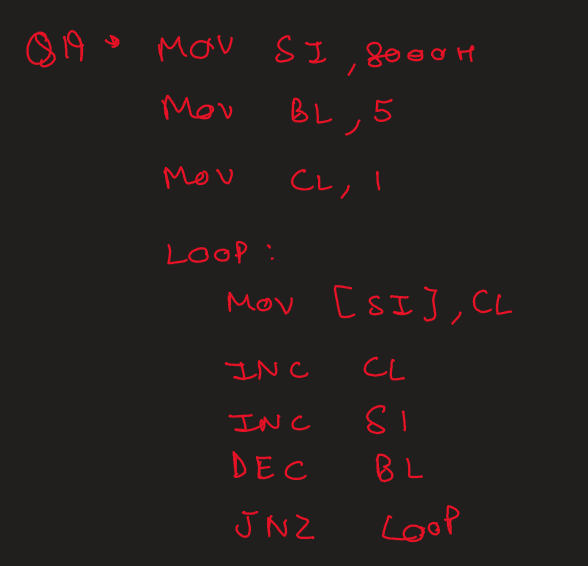 QA • MOV SI, 8000H
MOV BL, 5
MOV CL, 1
LOOP :
MOV [SI], CL
INC CL
INC SI
DEC BL
JNZ LOOP